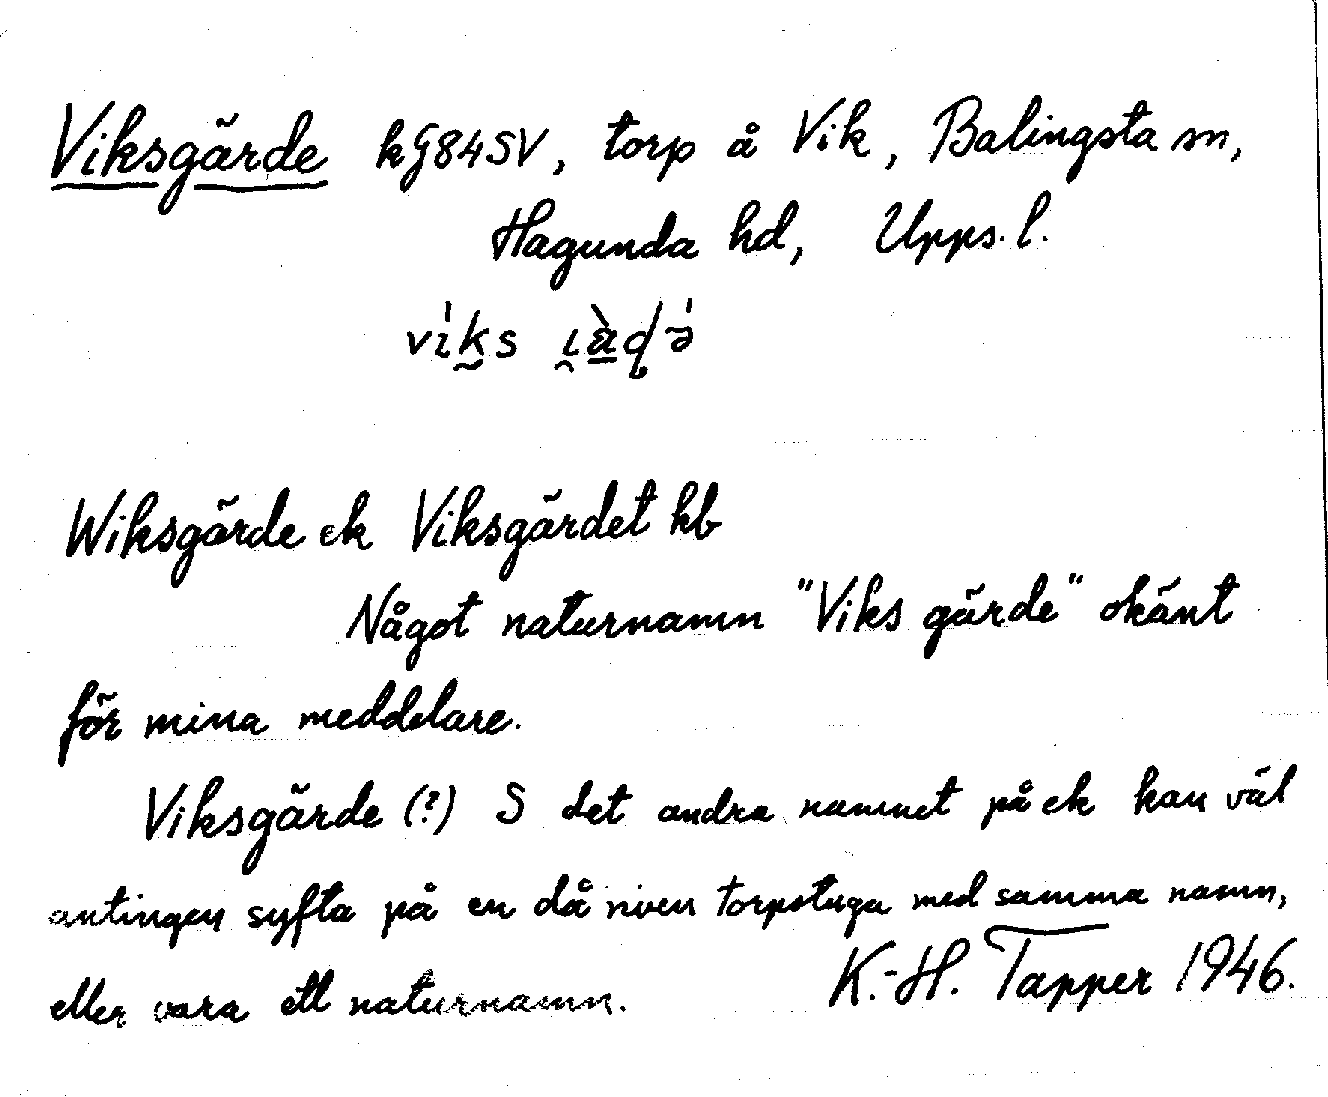 Viksgärde kg84SV, torp å Vik, Balingsta sn,
Hagunda hd, Upps. l.
Wiksgärde ek Viksgärdet kb
Något naturnamn "Viks gärde" okänt
för mina meddelare.
Viksgärde (?) S det andra namnet på ek kan väl
antingen syfta på en då riven torpstuga med samma namn,
eller vara ett naturnamn. K.-H. Tapper 1946.